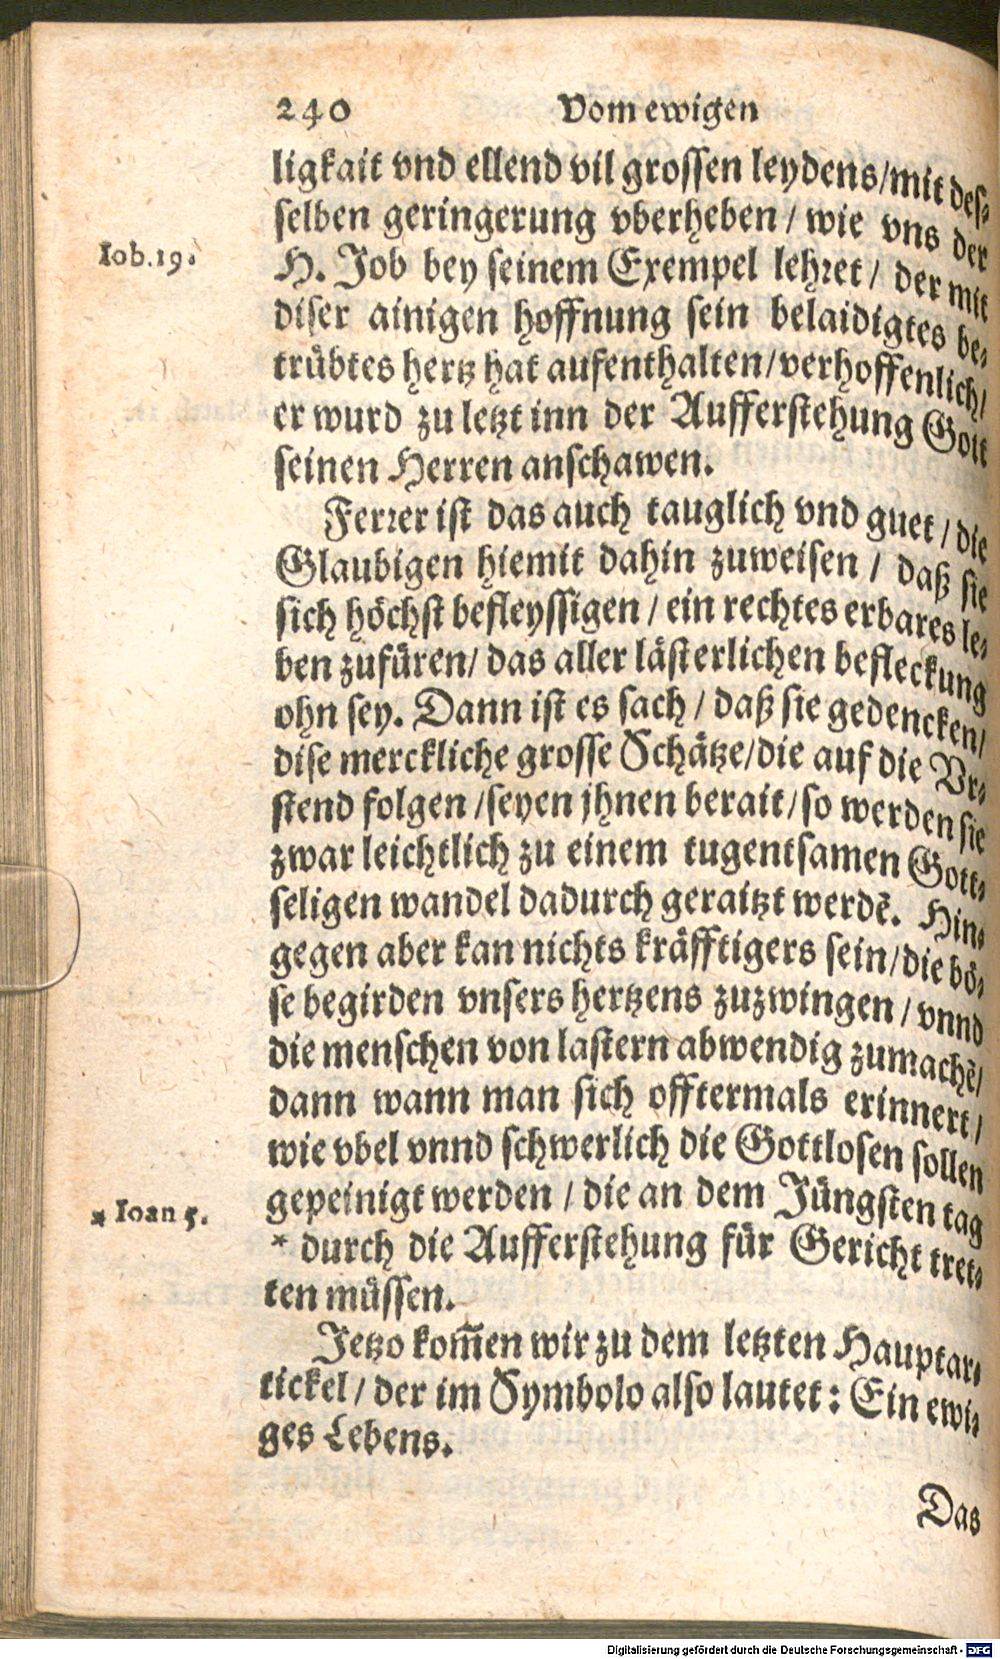 240 Vom ewigen
ligkait vnd ellend vil grossen leydens/mit des-
selben geringerung vberheben / wie vns der
Iob.19.
H. Job bey seinem Exempel lehret / der mit
diser ainigen hoffnung sein belaidigtes be-
trübtes hertz hat aufenthalten/verhoffenlich/
er wurd zu letzt inn der Aufferstehung Gott
seinen Herren anschawen.
Ferrer ist das auch tauglich vnd guet / die
Glaubigen hiemit dahin zuweisen / daß sie
sich höchst befleyssigen / ein rechtes erbares le-
ben zufüren/ das aller lästerlichen befleckung
ohn sey. Dann ist es sach / daß sie gedencken/
dise merckliche grosse Schätze/die auf die Vr-
stend folgen /seyen jhnen berait/so werden sie
zwar leichtlich zu einem tugentsamen Gott-
seligen wandel dadurch geraitzt werdẽ. Hin-
gegen aber kan nichts kräfftigers sein/die bö-
se begirden vnsers hertzens zuzwingen / vnnd
die menschen von lastern abwendig zumachẽ/
dann wann man sich offtermals erinnert /
wie vbel vnnd schwerlich die Gottlosen sollen
gepeinigt werden / die an dem Jüngsten tag
* Ioan 5.
* durch die Aufferstehung für Gericht tret-
ten müssen.
Jetzo kom̃en wir zu dem letzten Hauptar-
tickel / der im Symbolo also lautet: Ein ewi-
ges Lebens.
Das
Digitalisierung gefördert durch die Deutsche Forschungsgemeinschaft - DFG